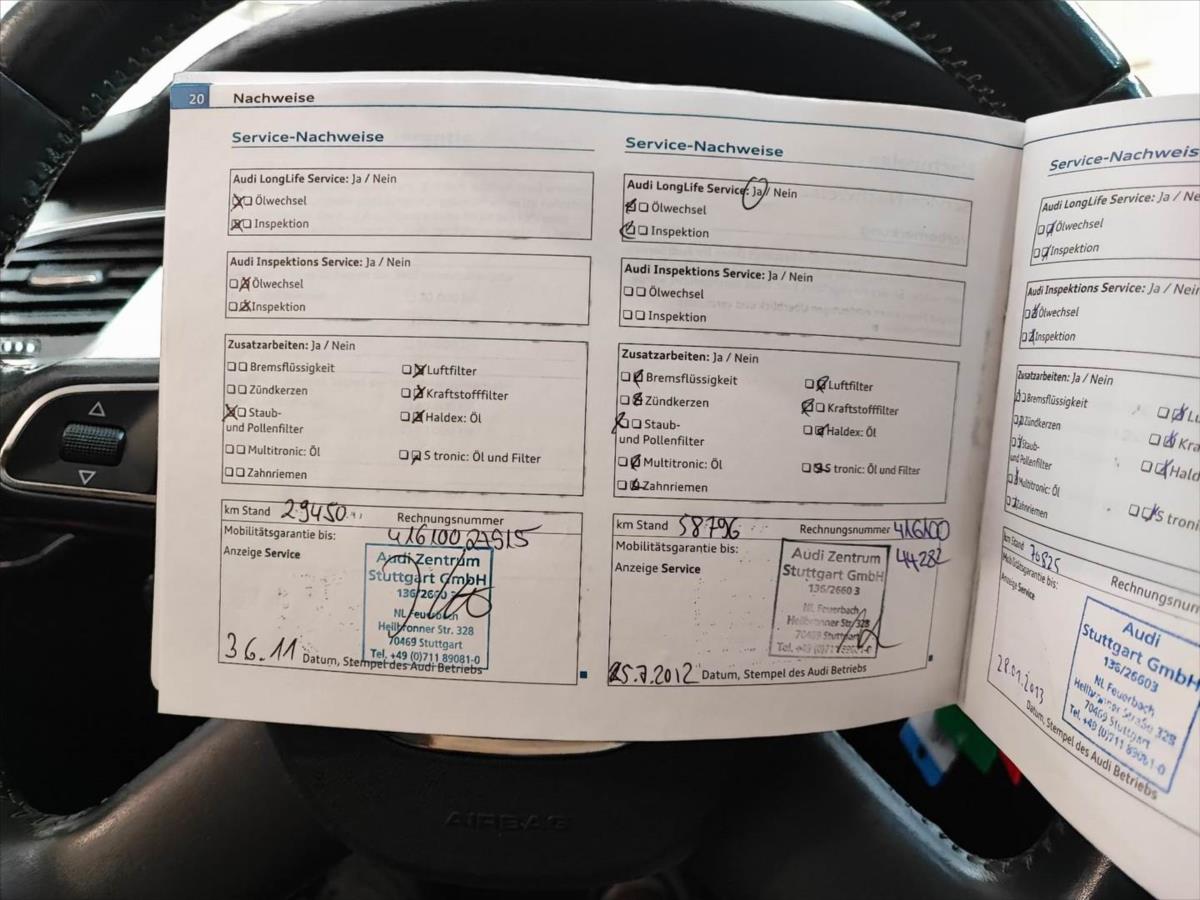 20 Nachweise
Service-Nachweise
Audi LongLife Service: Ja / Nein
Ölwechsel
Inspektion
Audi Inspektions Service: Ja / Nein
Ölwechsel
Inspektion
Zusatzarbeiten: Ja / Nein
Bremsflüssigkeit Luftfilter
Zündkerzen Kraftstofffilter
Staub- Haldex: Öl
und Pollenfilter
Multitronic: Öl S tronic: Öl und Filter
Zahnriemen
km Stand 29450 Rechnungsnummer
Mobilitätsgarantie bis: 416100 27515
Anzeige Service
Audi Zentrum
Stuttgart GmbH
136/2660 3
NL Feuerbach
Heilbronner Str. 328
70469 Stuttgart
Tel. +49 (0)711 89081-0
3.6.11 Datum, Stempel des Audi Betriebs
Service-Nachweise
Audi LongLife Service: Ja / Nein
Ölwechsel
Inspektion
Audi Inspektions Service: Ja / Nein
Ölwechsel
Inspektion
Zusatzarbeiten: Ja / Nein
Bremsflüssigkeit Luftfilter
Zündkerzen Kraftstofffilter
Staub- Haldex: Öl
und Pollenfilter
Multitronic: Öl S tronic: Öl und Filter
Zahnriemen
km Stand 58796 Rechnungsnummer 416100
Mobilitätsgarantie bis: 44282
Anzeige Service
Audi Zentrum
Stuttgart GmbH
136/2660 3
NL Feuerbach
Heilbronner Str. 328
70469 Stuttgart
Tel. +49 (0)711 89081-0
25.7.2012 Datum, Stempel des Audi Betriebs
Service-Nachweise
Audi LongLife Service: Ja / Ne
Ölwechsel
Inspektion
Audi Inspektions Service: Ja / Nein
Ölwechsel
Inspektion
Zusatzarbeiten: Ja / Nein
Bremsflüssigkeit Lu
Zündkerzen Kra
Staub- Hald
und Pollenfilter
Multitronic: Öl S tronic
Zahnriemen
km Stand 70825 Rechnungsnum
Mobilitätsgarantie bis:
Anzeige Service
Audi
Stuttgart GmbH
136/26603
NL Feuerbach
Heilbronner Straße 328
70469 Stuttgart
Tel. +49 (0)711 89081-0
28.01.2013
Datum, Stempel des Audi Betriebs
AIRBAG